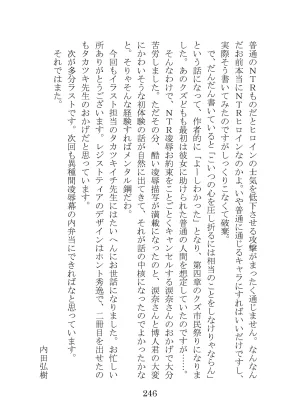 普通のNTRものだとヒロインの士気を低下させる攻撃がまったく通じません。なんなん
だお前本当にNTRヒロインなのかよ…。いや普通に通じるキャラにすればいいだけですし、
実際そう書いてみたのですがしっくりこなくて破棄。
で、だんだん書いていると「こいつの心を圧し折るには相当のことをしなけりゃならん」
という話になって、作者的に「よーしわかった」となり、第四章のクズ市民祭りになりま
した。あのクズどもも最初は彼女に助けられた普通の人間を想定していたのですが……。
そんなわけで、NTR凌辱お約束をことごとくキャンセルする涙奈さんのおかげで大分
苦労しました。ただその分、酷い凌辱描写が満載になったのと、涙奈さんと博人君の大変
にかわいそうな初体験の話が自然に出てきて、それが話の中核になったのでよかったかな
と。そりゃそんな経験すればメンタル鋼だわ。
今回もイラスト担当のタカツキイチ先生にはたいへんにお世話になりました。お忙しい
所ありがとうございます。レジスティアのデザインはホント秀逸で、二冊目を出せたの
もタカツキ先生のおかげだと思っています。
次が多分ラストです。次回も異種間凌辱幕の内弁当にできればなと思っています。
それではまた。
内田弘樹
246